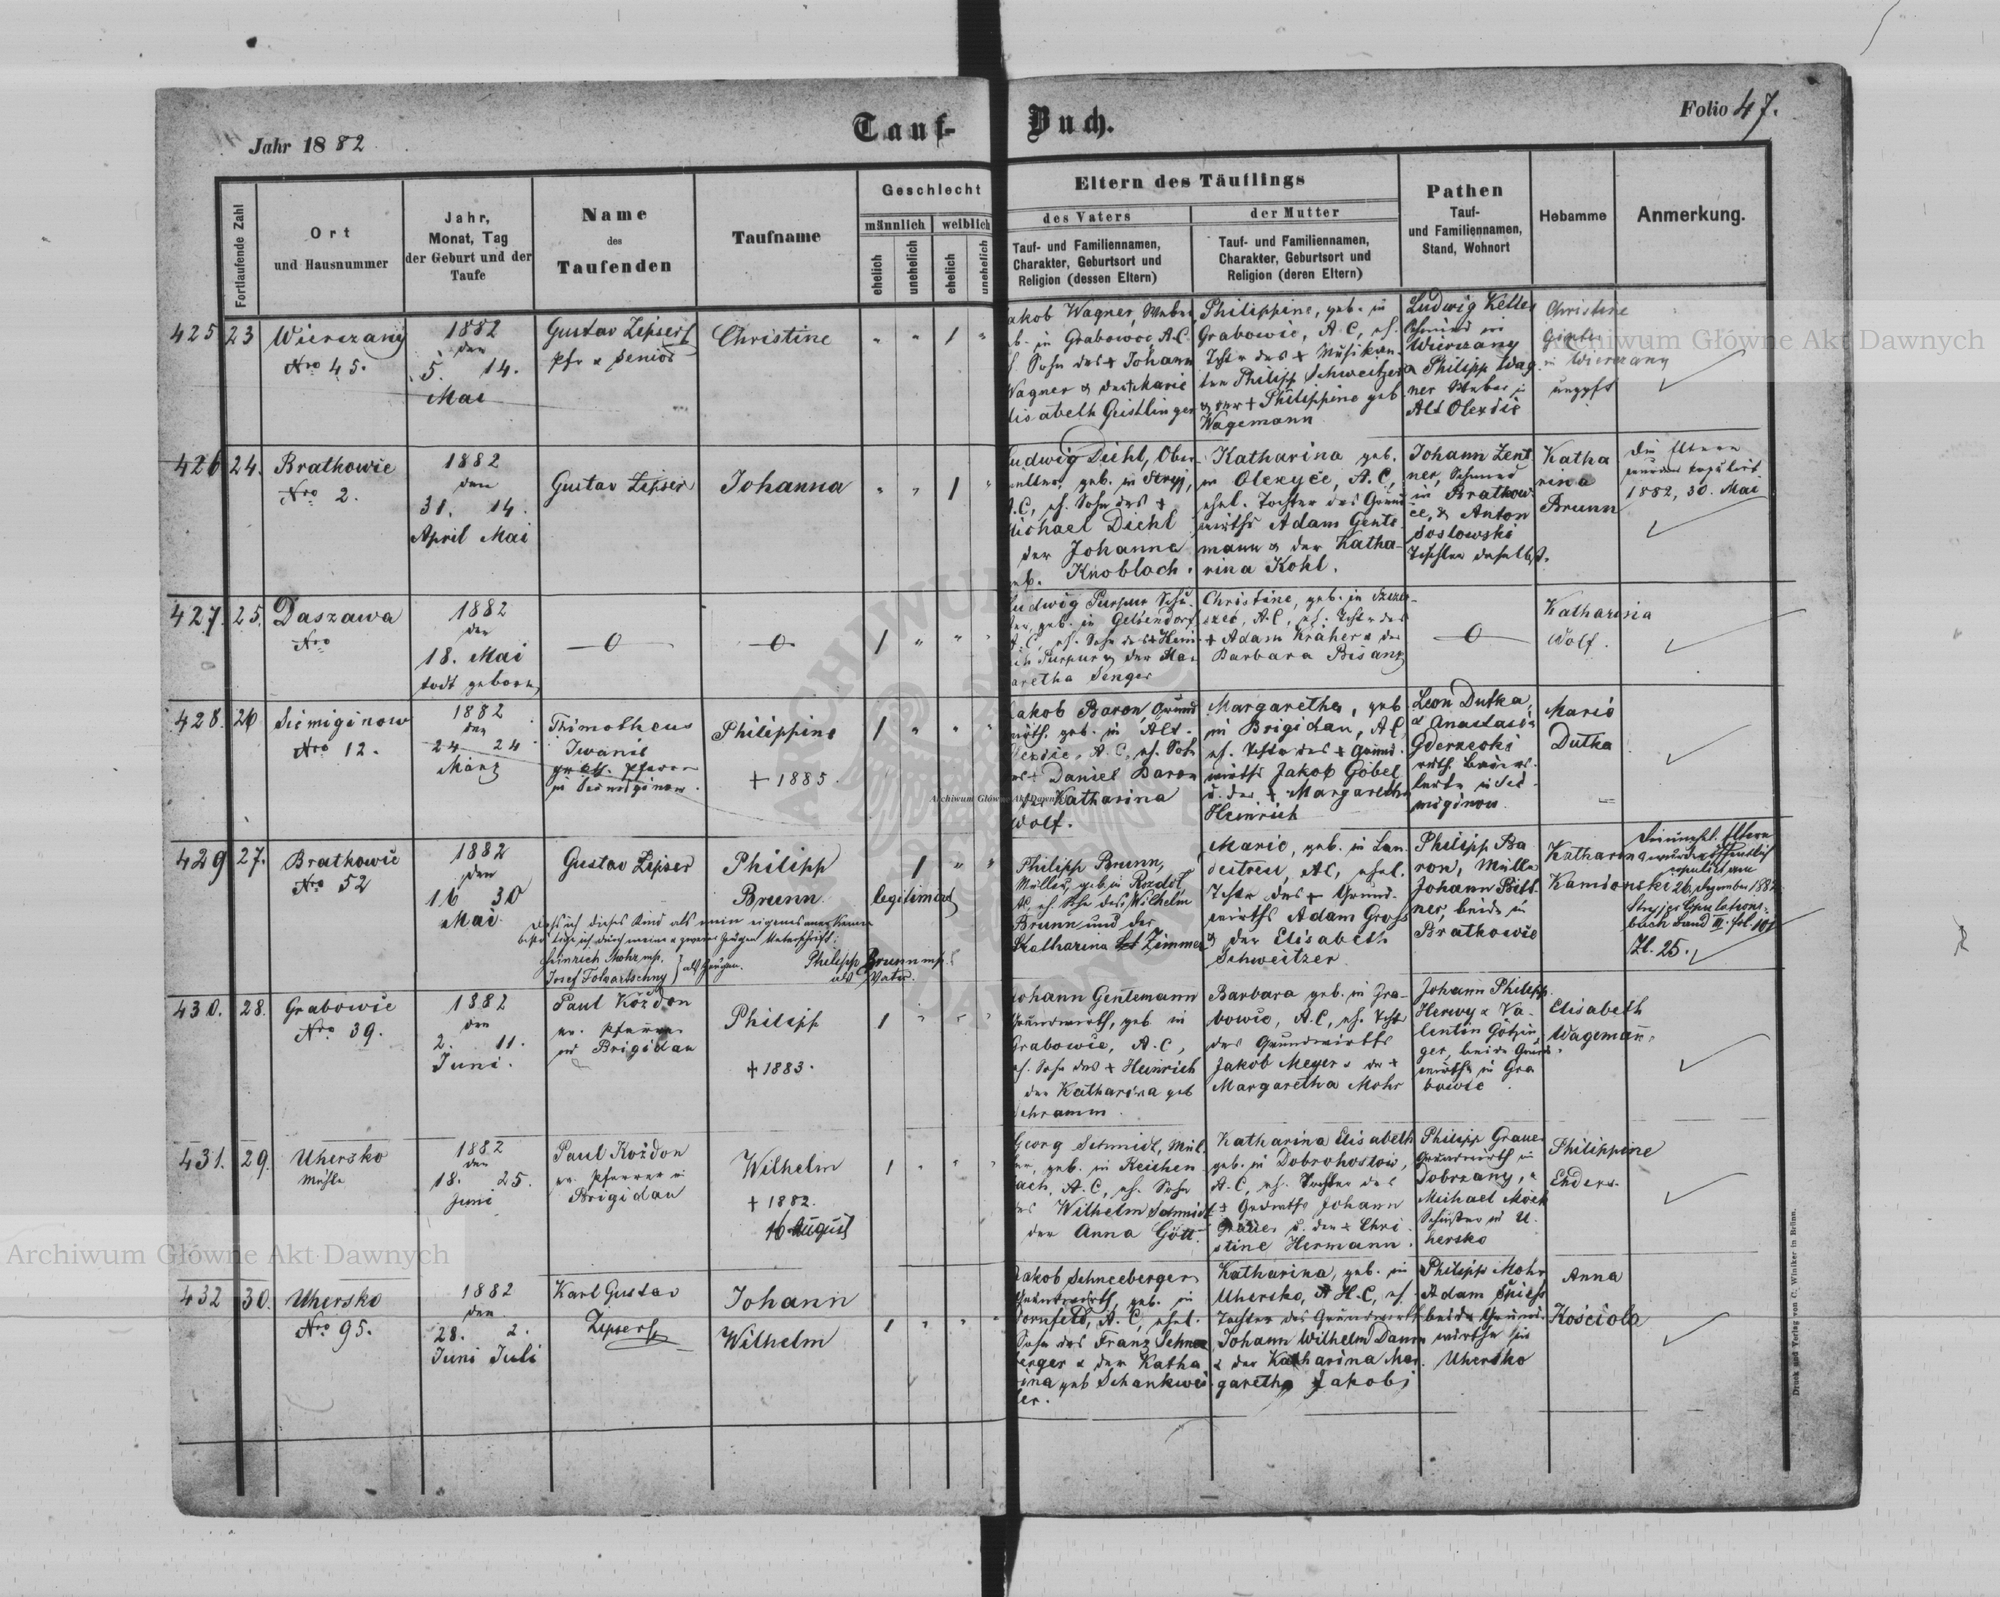 Jahr 1882
Tauf- Buch.
Folio 47.
Fortlaufende Zahl
Ort
und Hausnummer
Jahr,
Monat, Tag
der Geburt und der
Taufe
Name
des
Taufenden
Taufname
Geschlecht
männlich weiblich
ehelich unehelich ehelich unehelich
Eltern des Täuflings
des Vaters
Tauf- und Familiennamen,
Charakter, Geburtsort und
Religion (dessen Eltern)
der Mutter
Tauf- und Familiennamen,
Charakter, Geburtsort und
Religion (deren Eltern)
Pathen
Tauf-
und Familiennamen,
Stand, Wohnort
Hebamme
Anmerkung.
425 23 Wierczany
Nro 45.
1882
den
5. 14.
Mai
Gustav Zipser
Pfr & Senior
Christine
" " 1 "
akob Wagner, Weber
b. in Grabowce A.C.
h. Sohn des + Johann
Wagner & der Marie
lisabeth Geistlinger
Philippine, geb. in
Grabowic, A.C, eh.
Tcht. des + Musikan-
ten Philipp Schweitzer
& der + Philippine geb
Wagemann
Ludwig Keller
Schmied in
Wierczany
& Philipp Wag
ner Weber in
Alt Olexdic
Christine
in Wierczany
ungepft
426 24. Bratkowic
Nro 2.
1882
den
31. 14.
April Mai
Gustav Zipser
Johanna
" " 1 "
udwig Diehl, Ober
müller, geb. in Stryj,
A.C, eh. Sohn des +
Michael Diehl
der Johanna
geb. Knobloch.
Katharina geb.
in Olexyce, A.C,
ehel. Tochter des Grund
wirths Adam Gente
mann & der Katha-
rina Kohl.
Johann Zent
ner, Schmied
in Bratkow
ce, & Anton
Soslowski
Tischler daselbst.
Katha
rina
Brunn
Die Eltern
wurden kopulirt
1882, 30. Mai
427. 25. Daszawa
Nro
1882
den
18. Mai
todt geboren
—0—
—0—
1 " " "
udwig Purpur Schu-
ter, geb. in Gelsendorf
A.C, eh. Sohn des + Hein
ich Purpur & der Mar
aretha Senger
Christine, geb. in
A.C, eh. Tcht. des
+ Adam Kräher & der
Barbara Bisanz
—0—
Katharina
Wolf.
428. 26 Siemiginow
Nro 12.
1882
den
24 24
März
Thimotheus
Iwanic
gr. kth. Pfarrer
in Siemiginow.
Philippine
+ 1885.
1 " " "
akob Baron, Grund
wirth. geb. in Alt-
lexdic, A.C, eh. Sohn
es + Daniel Baron
der Katharina
Wolf.
Margaretha, geb
in Brigidau, A.C,
eh. Tchtr des + Grund-
wirths Jakob Göbel
u. der + Margaretha
Heinrich
Leon Dutka,
& Anastasia
ruth. Bauers-
leute in Sie-
miginow.
Maria
Dutka
429 27. Bratkowic
Nro 52
1882
den
16 30
Mai
Gustav Zipser
Philipp
Brunn
1 " "
legitimirt
Daß ich dieses Kind als mein eigenes anerkenne
bestätige ich durch meine & zweier Zeugen Unterschrift:
Heinrich Mohr mp.
Josef Folvartschny } als Zeugen.
Philipp Brunn mp.
als Vater.
Philipp Brunn,
Müller, geb. in Rozdol,
AC, eh. Sohn des Wilhelm
Brunn und der
Katharina Zimmer
Marie, geb. in Lan
destreu, AC, ehel.
Tchtr des + Grund-
wirths Adam Groß
& der Elisabeth
Schweitzer
Philipp Ba
ron, Müller
Johann Bitt
ner, beide in
Bratkowic
Katharina
Kamionski
Die unehl. Eltern
wurden öffentlich
copulirt am
26. Dezember 1882
Stryjer Copulations-
buch Band III. fol. 101
Zl. 25.
430. 28. Grabowic
Nro 39.
1882
den
2. 11.
Juni.
Paul Kozdon
ev. Pfarrer
in Brigidau
Philipp
+ 1883.
1 " " "
ohann Gentemann
Grundwirth, geb. in
Grabowic, A.C,
eh. Sohn des + Heinrich
der Katharina geb
Schramm.
Barbara geb. in Gra-
bowic, A.C, eh. Tchtr
des Grundwirths
Jakob Meyer & der +
Margaretha Mohr
Johann Philipp
Herwy & Va-
lentin Götzin
ger, beide Grund-
wirthe in Gra
bowic.
Elisabeth
Wagemañ.
431. 29. Uhersko
Mühle
1882
den
18. 25.
Juni
Paul Kozdon
ev. Pfarrer in
Brigidau
Wilhelm
+ 1882.
16 August
1 " " "
Georg Schmidt, Mül-
er, geb. in Reichen
bach, A.C, eh. Sohn
des Wilhelm Schmidt
der Anna Gött.
Katharina Elisabeth
geb. in Dobrohostow,
A.C, eh. Tochter des
+ Grdwirths Johann
Grauer u. der + Chri-
stine Hermann.
Philipp Grauer
Grundwirth in
Dobrzany, &
Michael Möck
Schuster in U-
hersko
Philippine
Enders.
432 30. Uhersko
Nro 95.
1882
den
28. 2.
Juni Juli
Karl Gustav
Zipser
Johann
Wilhelm
1 " " "
Jakob Schneeberger
Grundwirth, geb. in
Dornfeld, A.C, ehel.
Sohn des Franz Schnee
berger & der Katha
rina geb Schankwei
ler.
Katharina, geb. in
Uhersko, H.C, eh.
Tochter des Grundwirth
Johann Wilhelm Damm
& der Katharina Mar-
garetha Jakobi
Philipp Mohr
Adam Spieß
beide Grund-
wirthe in
Uhersko
Anna
Kosciola
Druck und Verlag von C. Winiker in Brünn.
Archiwum Główne Akt Dawnych
Archiwum Główne Akt Dawnych
Archiwum Główne Akt Dawnych